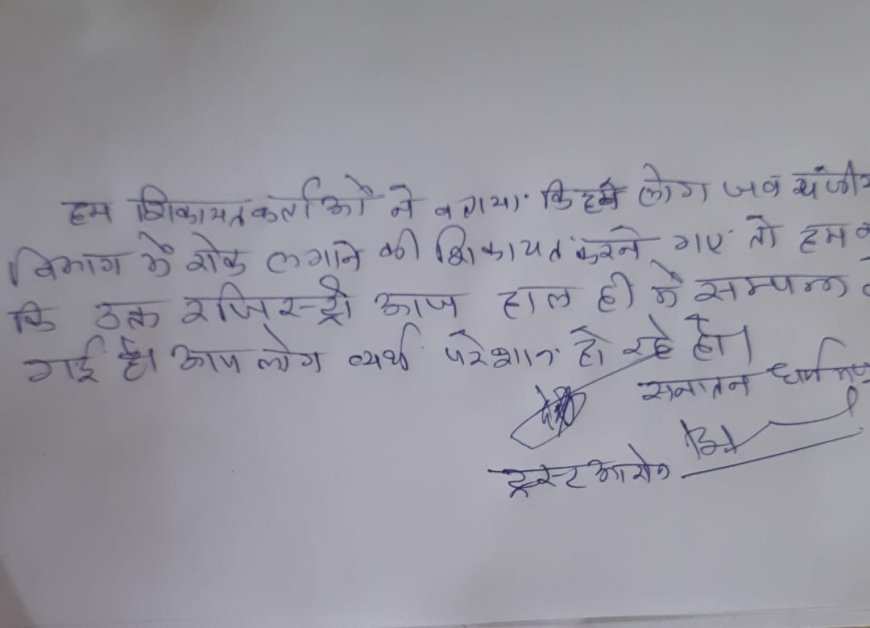 हम शिकायतकर्ताओ ने बताया कि हम लोग जब पंजीय
विभाग में रोक लगाने की शिकायत करने गए तो हम
कि उक्त रजिस्ट्री आज हाल ही में सम्पन्न
गई है। आप लोग व्यर्थ परेशान हो रहे हो।
सनातन धर्म
ट्रस्ट